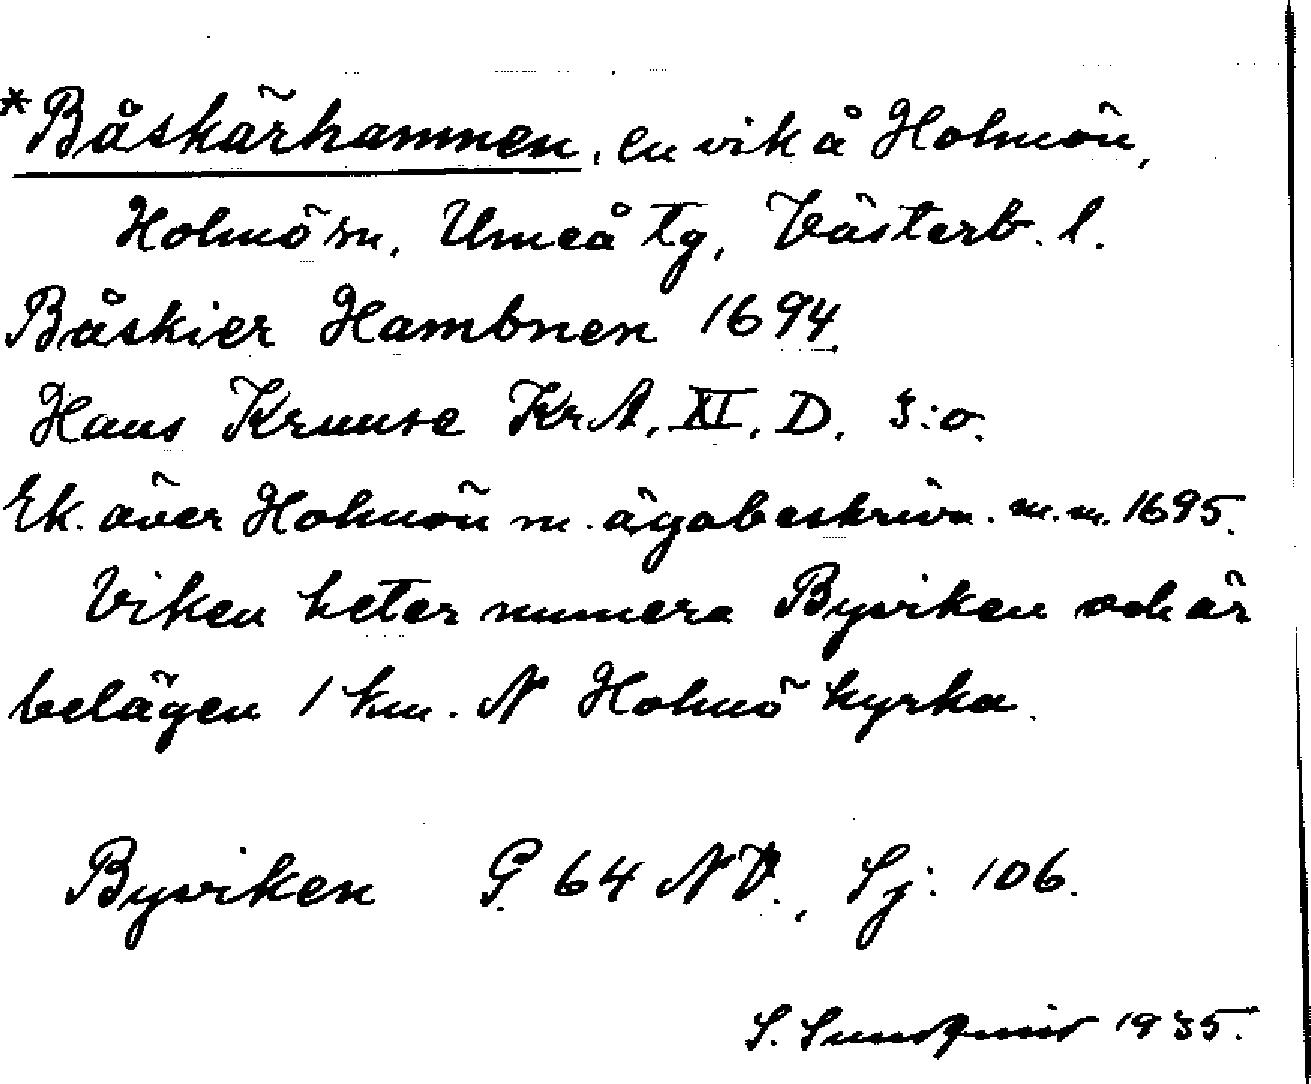 *Båskärhamnen, en vik å Holmön,
Holmö sn, Umeå tg, Västerb. l.
Båskier Hambnen 1694.
Hans Kruuse KrA, XI, D, 3:o.
Ek. över Holmön m. ägobeskrivn. m.m. 1695.
Viken heter numera Byviken och är
belägen 1 km. N Holmö kyrka.
Byviken G 64 NV., Sj: 106.
S. Sundquist 1935.